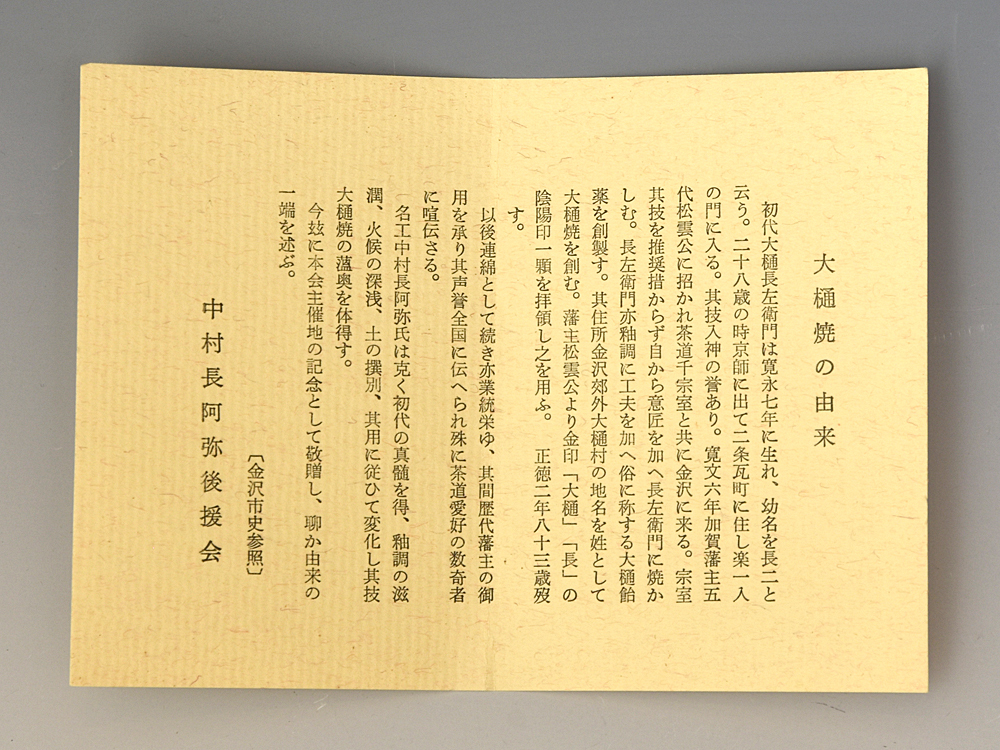 大樋焼の由来
初代大樋長左衛門は寛永七年に生れ、幼名を長二と
云う。二十八歳の時京師に出て二条瓦町に住し楽一入
の門に入る。其技入神の誉あり。寛文六年加賀藩主五
代松雲公に招かれ茶道千宗室と共に金沢に来る。宗室
其技を推奨措からず自から意匠を加へ長左衛門に焼か
しむ。長左衛門亦釉調に工夫を加へ俗に称する大樋飴
薬を創製す。其住所金沢郊外大樋村の地名を姓として
大樋焼を創む。藩主松雲公より金印「大樋」「長」の
陰陽印一顆を拝領し之を用ふ。 正徳二年八十三歳歿
す。
以後連綿として続き亦業統栄ゆ、其間歴代藩主の御
用を承り其声誉全国に伝へられ殊に茶道愛好の数奇者
に喧伝さる。
名工中村長阿弥氏は克く初代の真髄を得、釉調の滋
潤、火候の深浅、土の撰別、其用に従ひて変化し其技
大樋焼の薀奥を体得す。
今玆に本会主催地の記念として敬贈し、聊か由来の
一端を述ぶ。
〔金沢市史参照〕
中村長阿弥後援会